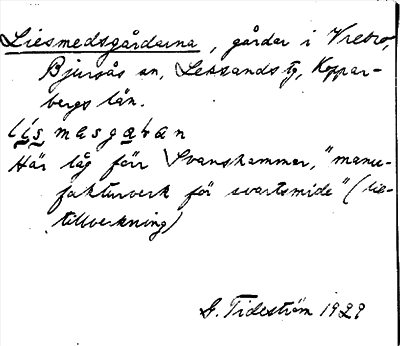 Liesmedsgårdarna, gårdar i Vrebro,
Bjursås sn, Leksands tg, Koppar-
bergs län.
li̯smasga̯ɽan
Här låg förr Svanshammar, "manu-
fakturverk för svartsmide" (lie-
tillverkning)
G. Tideström 1929